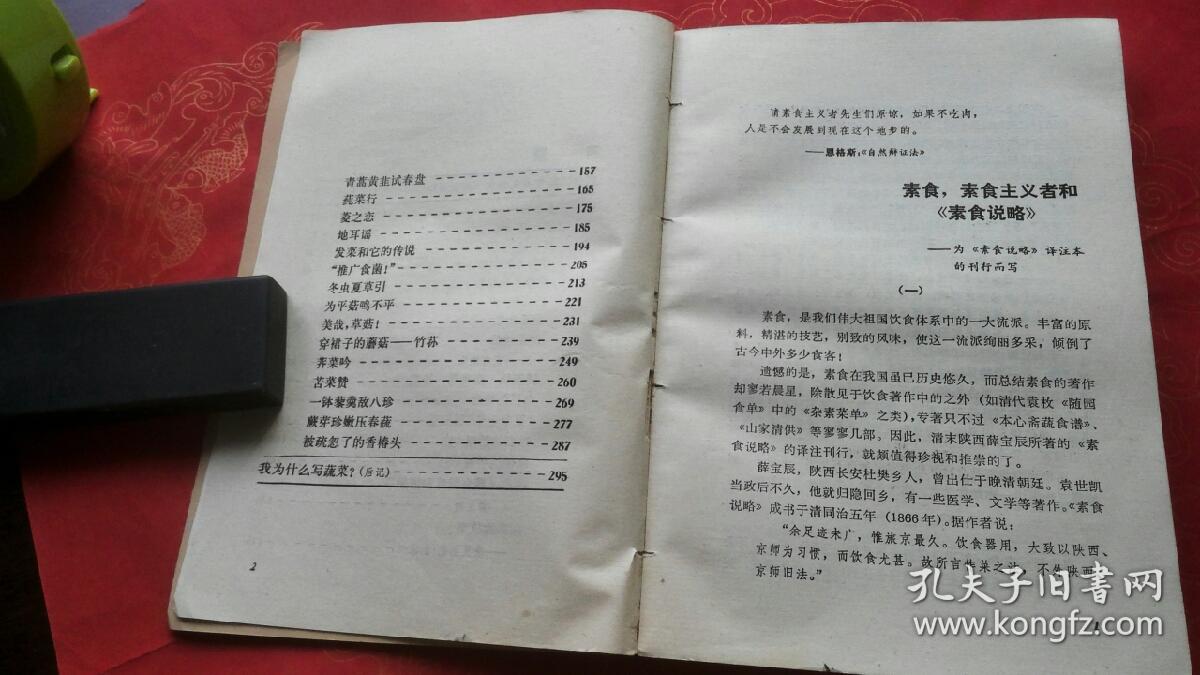 青蒿黄韭试春盘 187
莼菜行 165
菱之恋 175
地耳谣 185
发菜和它的传说 194
“推广食菌!” 205
冬虫夏草引 213
为平菇鸣不平 221
美哉,草菇! 231
穿裙子的蘑菇——竹荪 239
荠菜吟 249
苦菜赞 260
一钵藜羹敌八珍 269
蕨芽珍嫩压春蔬 277
被疏怠了的香椿头 287
我为什么写蔬菜?(后记) 295
2
请素食主义者先生们原谅,如果不吃肉,
人是不会发展到现在这个地步的。
——恩格斯:《自然辩证法》
素食,素食主义者和
《素食说略》
——为《素食说略》译注本
的刊行而写
(一)
素食,是我们伟大祖国饮食体系中的一大流派。丰富的原
料,精湛的技艺,别致的风味,使这一流派绚丽多采,倾倒了
古今中外多少食客!
遗憾的是,素食在我国虽已历史悠久,而总结素食的著作
却寥若晨星,除散见于饮食著作中的之外(如清代袁枚《随园
食单》中的《杂素菜单》之类),专著只不过《本心斋蔬食谱》、
《山家清供》等寥寥几部。因此,清末陕西薛宝辰所著的《素
食说略》的译注刊行,就颇值得珍视和推崇的了。
薛宝辰,陕西长安杜樊乡人,曾出仕于晚清朝廷。袁世凯
当政后不久,他就归隐回乡,有一些医学、文学等著作。《素食
说略》成书于清同治五年(1866年)。据作者说:
“余足迹未广,惟旅京最久。饮食器用,大致以陕西、
京师为习惯,而饮食尤甚。故所言作菜之法,不外陕西
京师旧法。”
孔夫子旧书网
www.kongfz.com